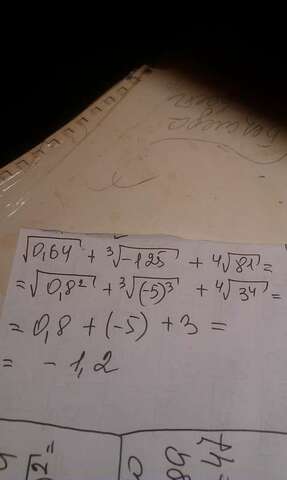 √0,64 + ³√-125 + ⁴√81 =
= √0,8² + ³√(-5)³ + ⁴√3⁴ =
= 0,8 + (-5) + 3 =
= - 1,2